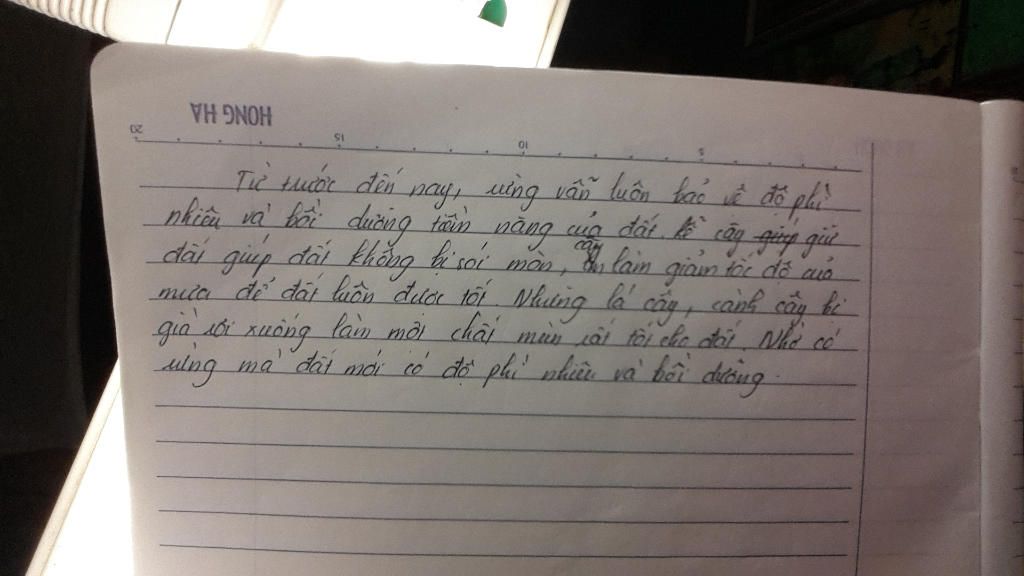 HONG HA
20 15 10 5
Từ trước đến nay, rừng vẫn luôn bảo vệ độ phì
nhiêu và bồi dưỡng tiềm năng của đất. cây giúp giữ
đất giúp đất không bị sói mòn, cây làm giảm tốc độ của
mưa để đất luôn được tốt. Những lá cây, cành cây bị
già rơi xuống làm mồi chất mùn rất tốt cho đất. Nhờ có
rừng mà đất mới có độ phì nhiêu và bồi dưỡng.